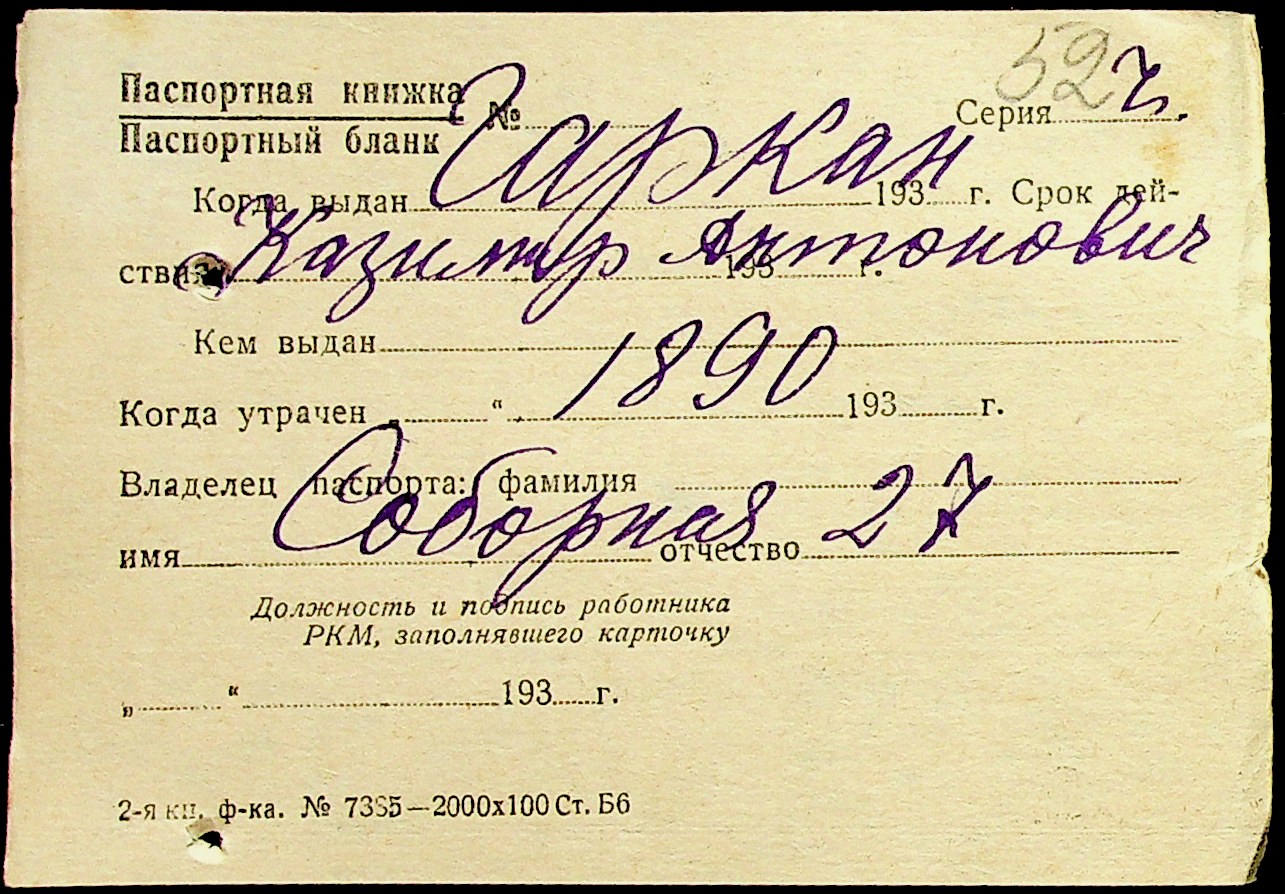 52
Паспортная книжка
№ Серия
Паспортный бланк
Когда выдан 193 г. Срок дей-
Казимир Антонович
ствия 193 г.
Кем выдан
1890
Когда утрачен „ “ 193 г.
Владелец паспорта: фамилия
Соборная 27
имя отчество
Должность и подпись работника
РКМ, заполнявшего карточку
„ “ 193 г.
2-я кн. ф-ка. № 7385—2000х100 Ст. Б6